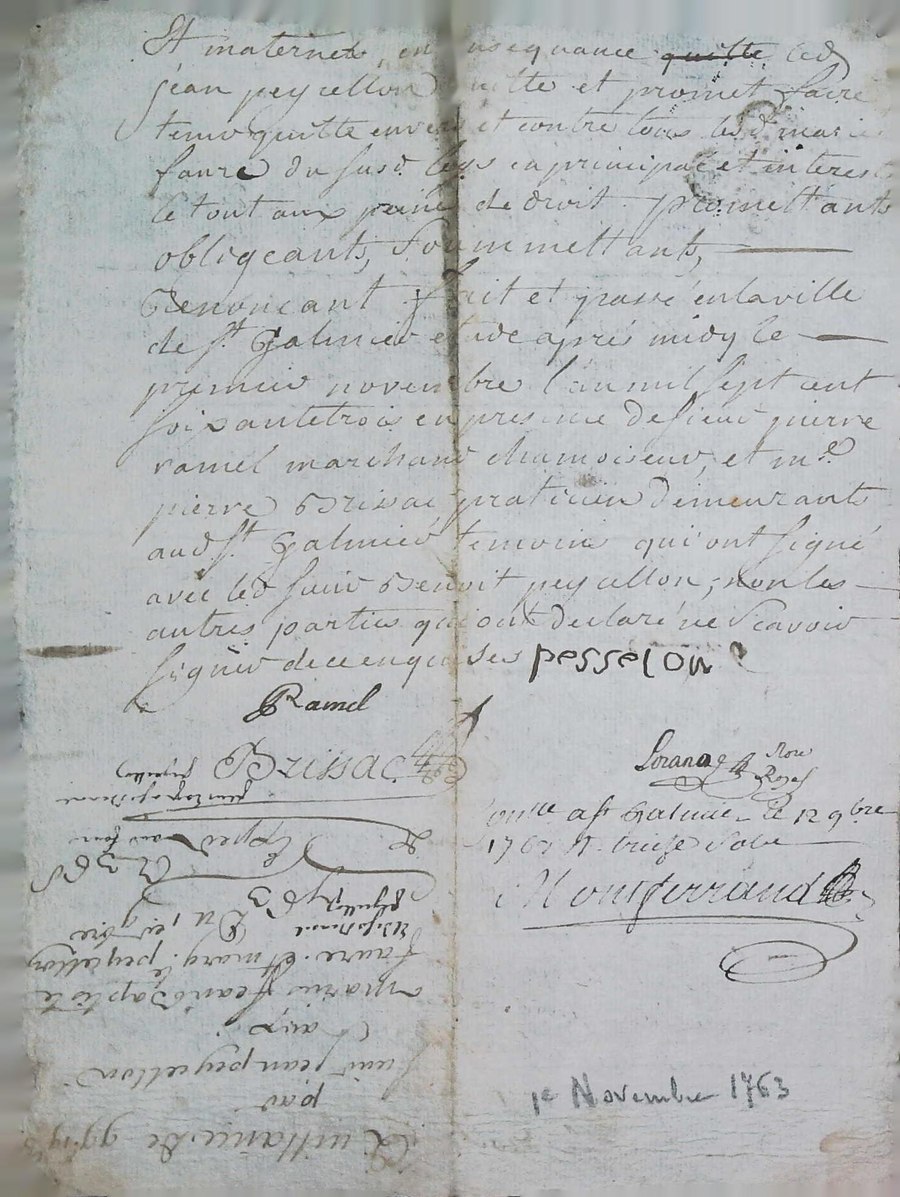 Et maternel, en consequance quitte led
jean peycellon quitte et promet faire
tenir quitte envers et contre tous lesd maries
faure du susd legs en principal et interest
le tout aux peines de droit. promettants
obligeants, soummettants,
Renonçant fait et passé en la ville
de St Galmier etude aprés midy le
premier novembre l'an mil sept cent
soixante trois en presence de sieur pierre
ramel marchand chamoiseur, et me
pierre Brissac praticien demeurants
aud St Galmier temoins qui ont signé
avec led sieur Benoit peycellon, non les
autres parties qui ont declaré ne scavoir
signer de ce enquises pesselon
Ramel
Brissac
Noré
Royal
Conlle a St Galmier le 12 9bre
1763 R. treize sols
Montferrand
1er Novembre 1763
Quittance de
par
Sieur Jean peycellon
aux
maries Jean Baptiste
faure et marg. peycellon
Du 1er 9bre
1763